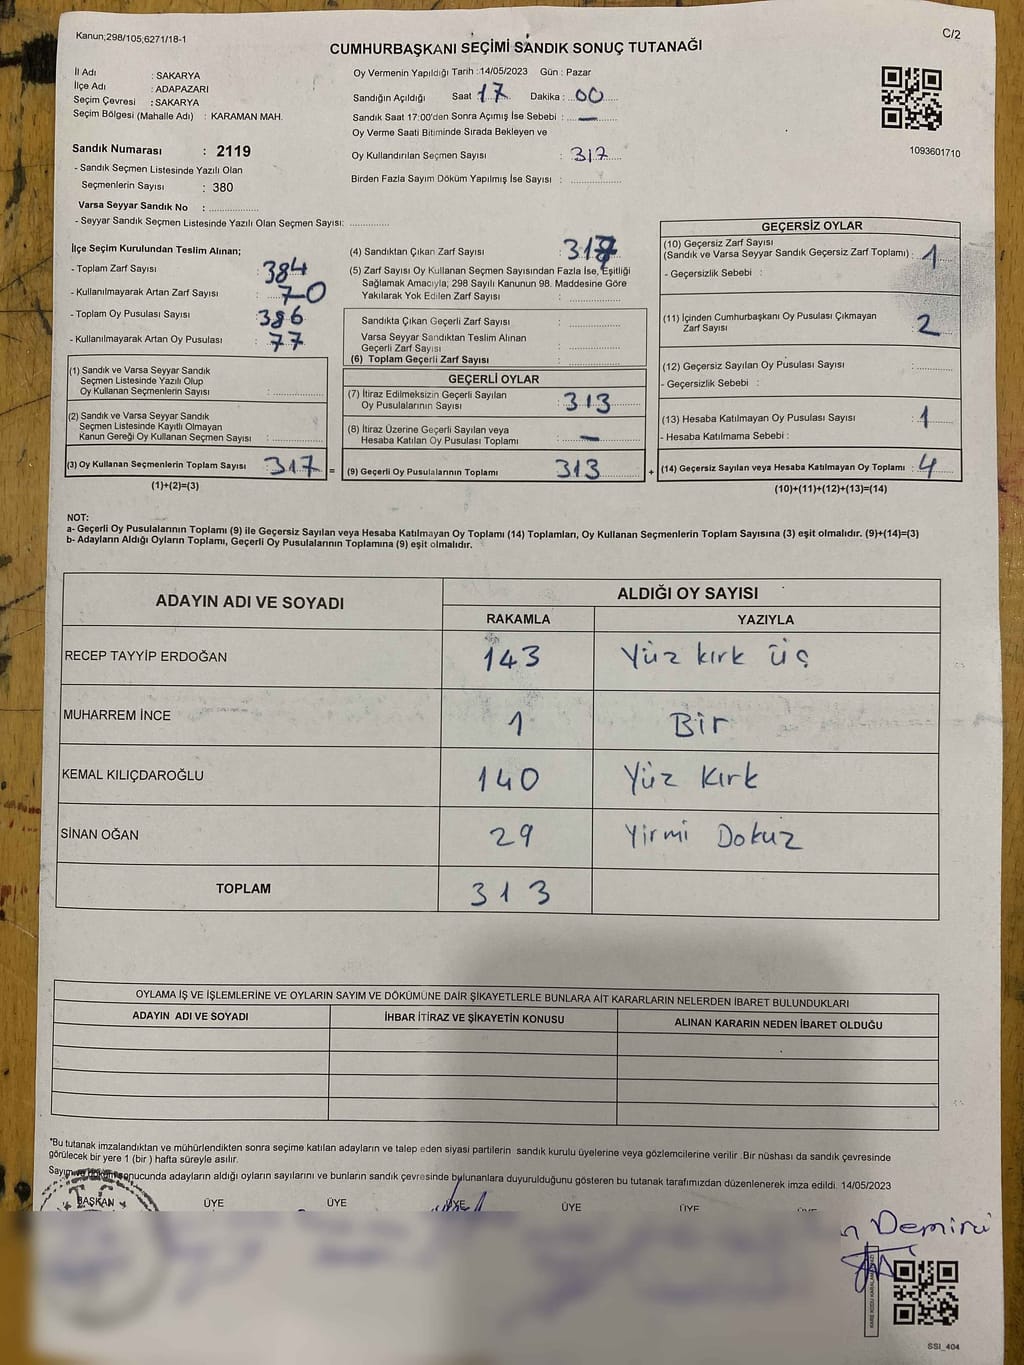 Kanun;298/105;6271/18-1
C/2
CUMHURBAŞKANI SEÇİMİ SANDIK SONUÇ TUTANAĞI
İl Adı : SAKARYA
İlçe Adı : ADAPAZARI
Seçim Çevresi : SAKARYA
Seçim Bölgesi (Mahalle Adı) : KARAMAN MAH.
Sandık Numarası : 2119
- Sandık Seçmen Listesinde Yazılı Olan
Seçmenlerin Sayısı : 380
Varsa Seyyar Sandık No :
- Seyyar Sandık Seçmen Listesinde Yazılı Olan Seçmen Sayısı:
Oy Vermenin Yapıldığı Tarih :14/05/2023 Gün : Pazar
Sandığın Açıldığı Saat 17 Dakika : 00
Sandık Saat 17:00'den Sonra Açımış İse Sebebi : —
Oy Verme Saati Bitiminde Sırada Bekleyen ve
Oy Kullandırılan Seçmen Sayısı : 317
Birden Fazla Sayım Döküm Yapılmış İse Sayısı :
1093601710
İlçe Seçim Kurulundan Teslim Alınan;
- Toplam Zarf Sayısı : 384
- Kullanılmayarak Artan Zarf Sayısı : 70
- Toplam Oy Pusulası Sayısı : 386
- Kullanılmayarak Artan Oy Pusulası : 77
(1) Sandık ve Varsa Seyyar Sandık
Seçmen Listesinde Yazılı Olup
Oy Kullanan Seçmenlerin Sayısı :
(2) Sandık ve Varsa Seyyar Sandık
Seçmen Listesinde Kayıtlı Olmayan
Kanun Gereği Oy Kullanan Seçmen Sayısı :
(3) Oy Kullanan Seçmenlerin Toplam Sayısı : 317 =
(1)+(2)=(3)
(4) Sandıktan Çıkan Zarf Sayısı : 317
(5) Zarf Sayısı Oy Kullanan Seçmen Sayısından Fazla İse, Eşitliği
Sağlamak Amacıyla; 298 Sayılı Kanunun 98. Maddesine Göre
Yakılarak Yok Edilen Zarf Sayısı :
Sandıkta Çıkan Geçerli Zarf Sayısı :
Varsa Seyyar Sandıktan Teslim Alınan
Geçerli Zarf Sayısı :
(6) Toplam Geçerli Zarf Sayısı :
GEÇERLİ OYLAR
(7) İtiraz Edilmeksizin Geçerli Sayılan
Oy Pusulalarının Sayısı : 313
(8) İtiraz Üzerine Geçerli Sayılan veya
Hesaba Katılan Oy Pusulası Toplamı : —
(9) Geçerli Oy Pusulalarının Toplamı 313 +
GEÇERSİZ OYLAR
(10) Geçersiz Zarf Sayısı
(Sandık ve Varsa Seyyar Sandık Geçersiz Zarf Toplamı) : 1
- Geçersizlik Sebebi :
(11) İçinden Cumhurbaşkanı Oy Pusulası Çıkmayan
Zarf Sayısı : 2
(12) Geçersiz Sayılan Oy Pusulası Sayısı :
- Geçersizlik Sebebi :
(13) Hesaba Katılmayan Oy Pusulası Sayısı : 1
- Hesaba Katılmama Sebebi :
(14) Geçersiz Sayılan veya Hesaba Katılmayan Oy Toplamı : 4
(10)+(11)+(12)+(13)=(14)
NOT:
a- Geçerli Oy Pusulalarının Toplamı (9) ile Geçersiz Sayılan veya Hesaba Katılmayan Oy Toplamı (14) Toplamları, Oy Kullanan Seçmenlerin Toplam Sayısına (3) eşit olmalıdır. (9)+(14)=(3)
b- Adayların Aldığı Oyların Toplamı, Geçerli Oy Pusulalarının Toplamına (9) eşit olmalıdır.
ADAYIN ADI VE SOYADI
ALDIĞI OY SAYISI
RAKAMLA YAZIYLA
RECEP TAYYİP ERDOĞAN 143 Yüz kırk üç
MUHARREM İNCE 1 Bir
KEMAL KILIÇDAROĞLU 140 Yüz Kırk
SİNAN OĞAN 29 Yirmi Dokuz
TOPLAM 313
OYLAMA İŞ VE İŞLEMLERİNE VE OYLARIN SAYIM VE DÖKÜMÜNE DAİR ŞİKAYETLERLE BUNLARA AİT KARARLARIN NELERDEN İBARET BULUNDUKLARI
ADAYIN ADI VE SOYADI İHBAR İTİRAZ VE ŞİKAYETİN KONUSU ALINAN KARARIN NEDEN İBARET OLDUĞU
*Bu tutanak imzalandıktan ve mühürlendikten sonra seçime katılan adayların ve talep eden siyasi partilerin sandık kurulu üyelerine veya gözlemcilerine verilir .Bir nüshası da sandık çevresinde
görülecek bir yere 1 (bir ) hafta süreyle asılır.
Sayım ve döküm sonucunda adayların aldığı oyların sayılarını ve bunların sandık çevresinde bulunanlara duyurulduğunu gösteren bu tutanak tarafımızdan düzenlenerek imza edildi. 14/05/2023
BAŞKAN ÜYE ÜYE ÜYE ÜYE ÜYE
SSI_404